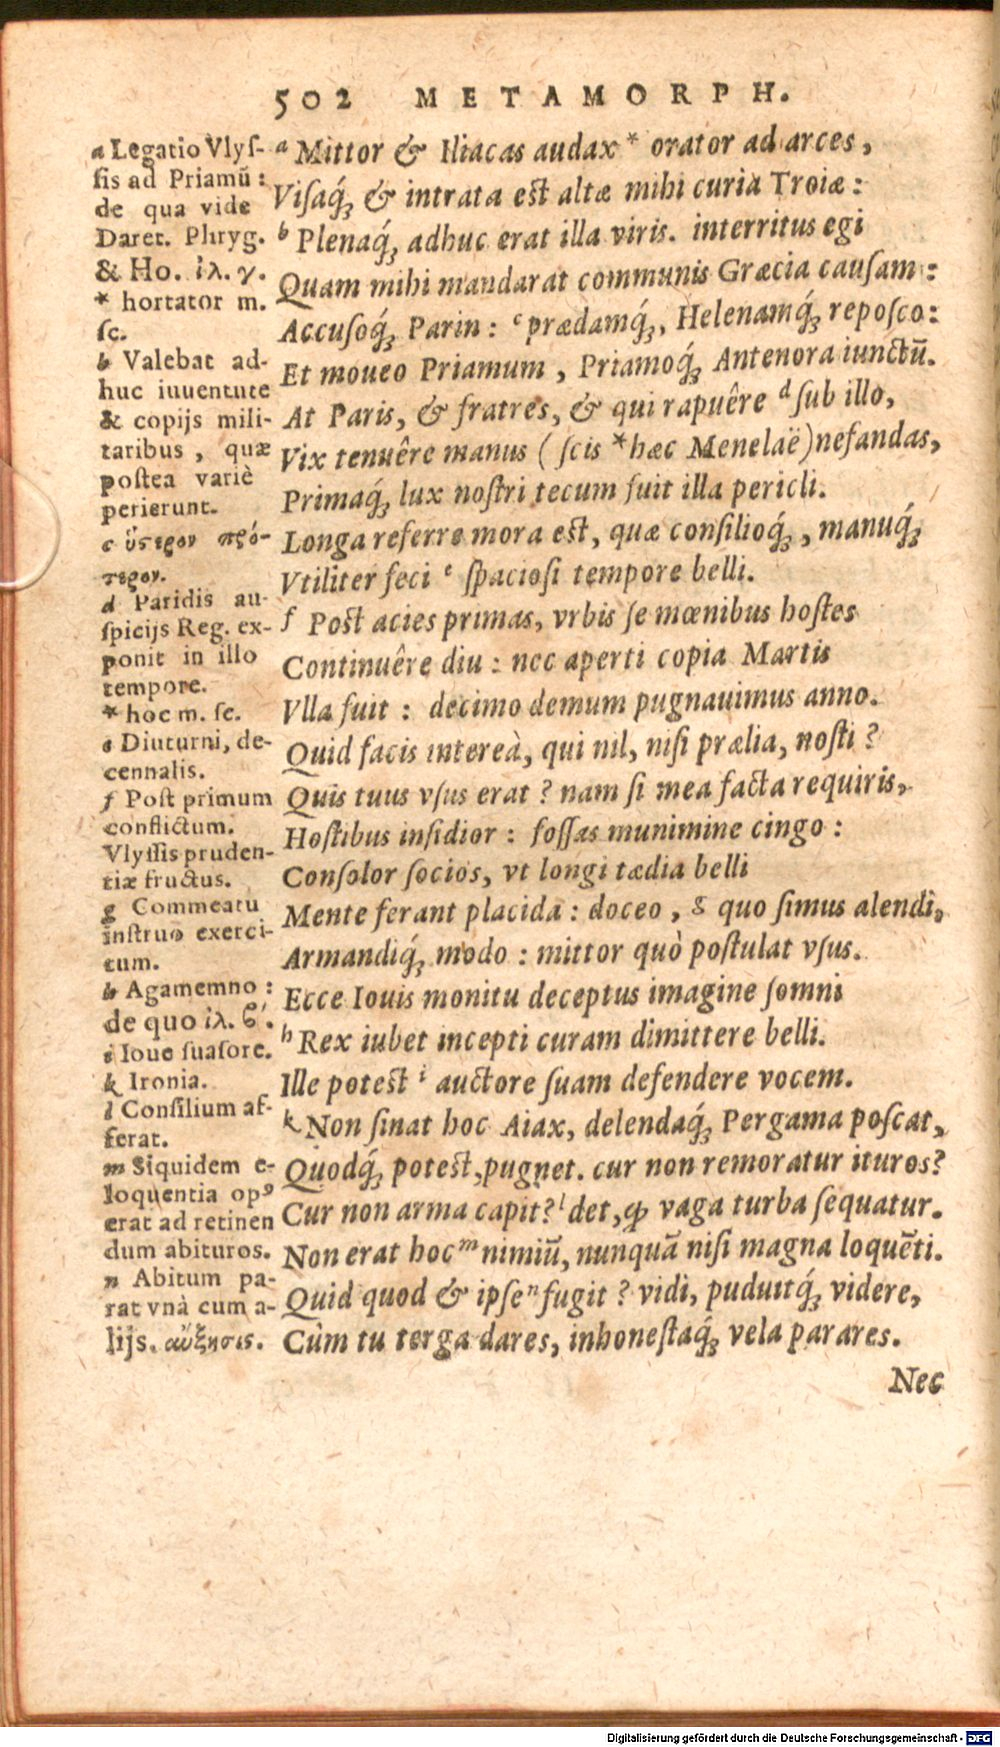 502 METAMORPH.
a Legatio Vlyſ-
ſis ad Priamū:
de qua vide
Daret. Phryg.
& Ho. ἰλ. γ.
* hortator m.
ſc.
b Valebat ad-
huc iuuentute
& copijs mili-
taribus, quæ
poſtea variè
perierunt.
c ὕςερον πρό-
τερον.
d Paridis au-
ſpicijs Reg. ex-
ponit in illo
tempore.
* hoc m. ſc.
e Diuturni, de-
cennalis.
f Poſt primum
conflictum.
Vlyſſis pruden-
tiæ fructus.
g Commeatu
inſtruo exerci-
tum.
h Agamemno:
de quo ἰλ. β΄.
i Ioue ſuaſore.
k Ironia.
l Conſilium af-
ferat.
m Siquidem e-
loquentia opꝰ
erat ad retinen
dum abituros.
n Abitum pa-
rat vnà cum a-
lijs. αὔξησις.
a Mittor & Iliacas audax * orator ad arces,
Viſaq́; & intrata eſt altæ mihi curia Troiæ:
b Plenaq́; adhuc erat illa viris. interritus egi
Quam mihi mandarat communis Græcia cauſam:
Accuſoq́; Parin: c prædamq́;, Helenamq́; repoſco:
Et moueo Priamum, Priamoq́; Antenora iunctū.
At Paris, & fratres, & qui rapuêre d ſub illo,
Vix tenuêre manus (ſcis * hæc Menelaë) nefandas,
Primaq́; lux noſtri tecum fuit illa pericli.
Longa referre mora eſt, quæ conſilioq́;, manuq́;
Vtiliter feci e ſpacioſi tempore belli.
f Poſt acies primas, vrbis ſe mœnibus hoſtes
Continuêre diu: nec aperti copia Martis
Vlla fuit: decimo demum pugnauimus anno.
Quid facis intereà, qui nil, niſi prælia, noſti?
Quis tuus vſus erat? nam ſi mea facta requiris,
Hoſtibus inſidior: foſſas munimine cingo:
Conſolor ſocios, vt longi tædia belli
Mente ferant placida: doceo, g quo ſimus alendi,
Armandiq́; modo: mittor quò poſtulat vſus.
Ecce Iouis monitu deceptus imagine ſomni
h Rex iubet incepti curam dimittere belli.
Ille poteſt i auctore ſuam defendere vocem.
k Non ſinat hoc Aiax, delendaq́; Pergama poſcat,
Quodq́; poteſt, pugnet. cur non remoratur ituros?
Cur non arma capit? l det, ꝙ vaga turba ſequatur.
Non erat hoc m nimiū, nunquā niſi magna loquēti.
Quid quod & ipſe n fugit? vidi, puduitq́; videre,
Cùm tu terga dares, inhoneſtaq́; vela parares.
Nec
Digitalisierung gefördert durch die Deutsche Forschungsgemeinschaft - DFG